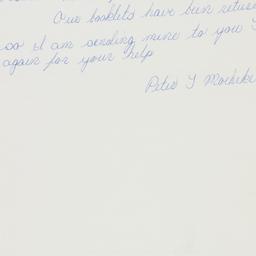 Our booklets have been
so I am sending mine to you
again for your help
Peter J